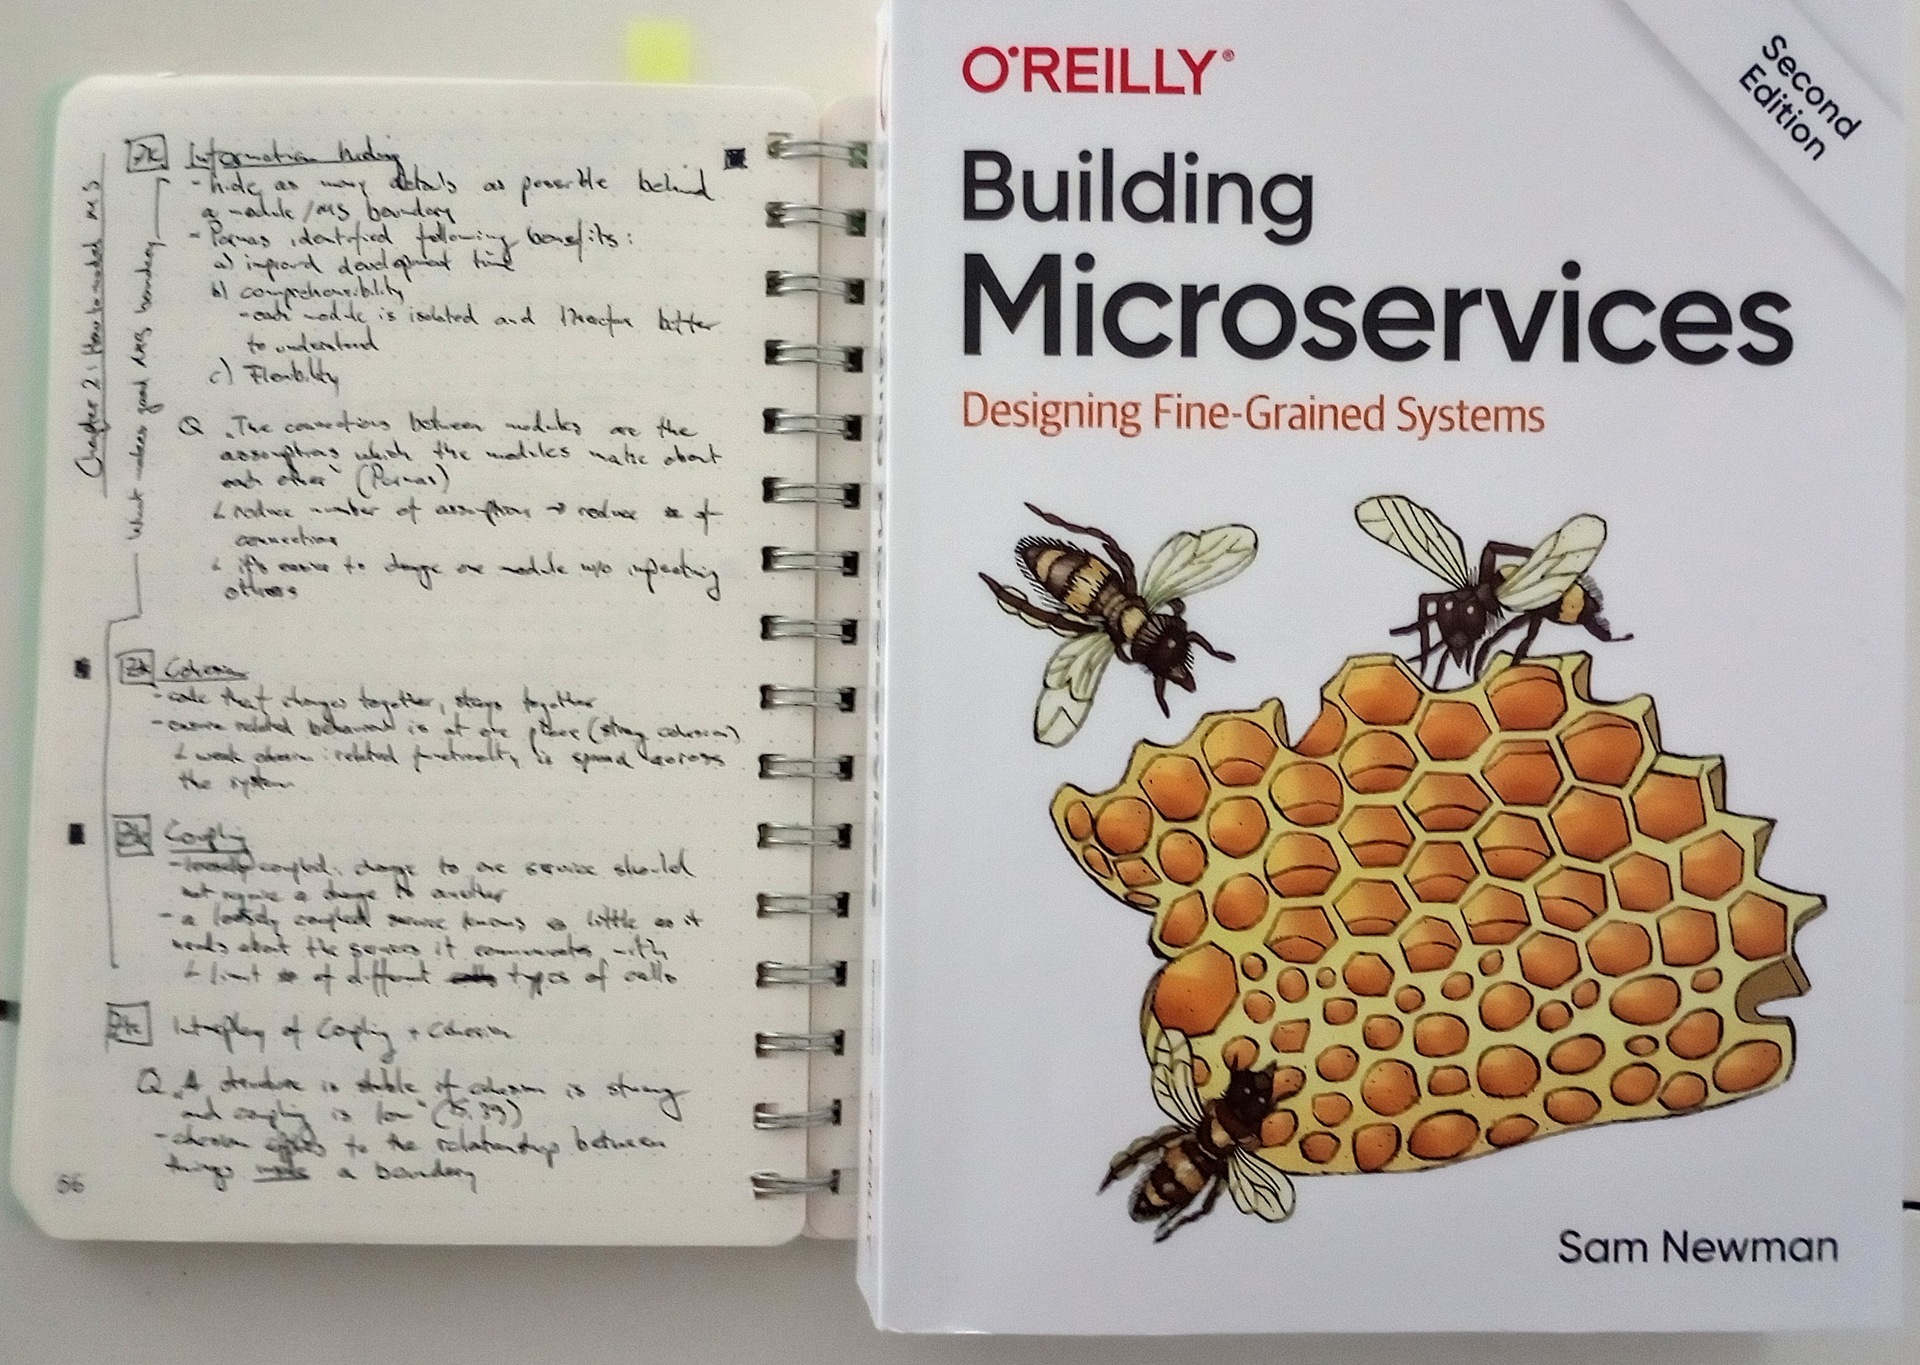 Chapter 2: How to model MS
What makes good MS boundary
Information hiding
- hide as many details as possible behind
a module/MS boundary
- Parnas identified following benefits:
a) improved development time
b) comprehensibility
- each module is isolated and therefore better
to understand
c) Flexibility
Q „The connections between modules are the
assumptions which the modules make about
each other“ (Parnas)
reduce number of assumptions → reduce # of
connections
it's easier to change one module w/o impacting
others
Cohesion
- code that changes together, stays together
- ensure related behaviour is at one place (strong cohesion)
weak cohesion: related functionality is spread across
the system
Coupling
- loosely coupled: change to one service should
not require a change to another
- a loosely coupled service knows as little as it
needs about the services it communicates with
limit # of different types of calls
Interplay of Coupling + Cohesion
Q „A structure is stable if cohesion is strong
and coupling is low“ (S.39)
- cohesion applies to the relationship between
things inside a boundary
56
O'REILLY®
Second
Edition
Building
Microservices
Designing Fine-Grained Systems
Sam Newman